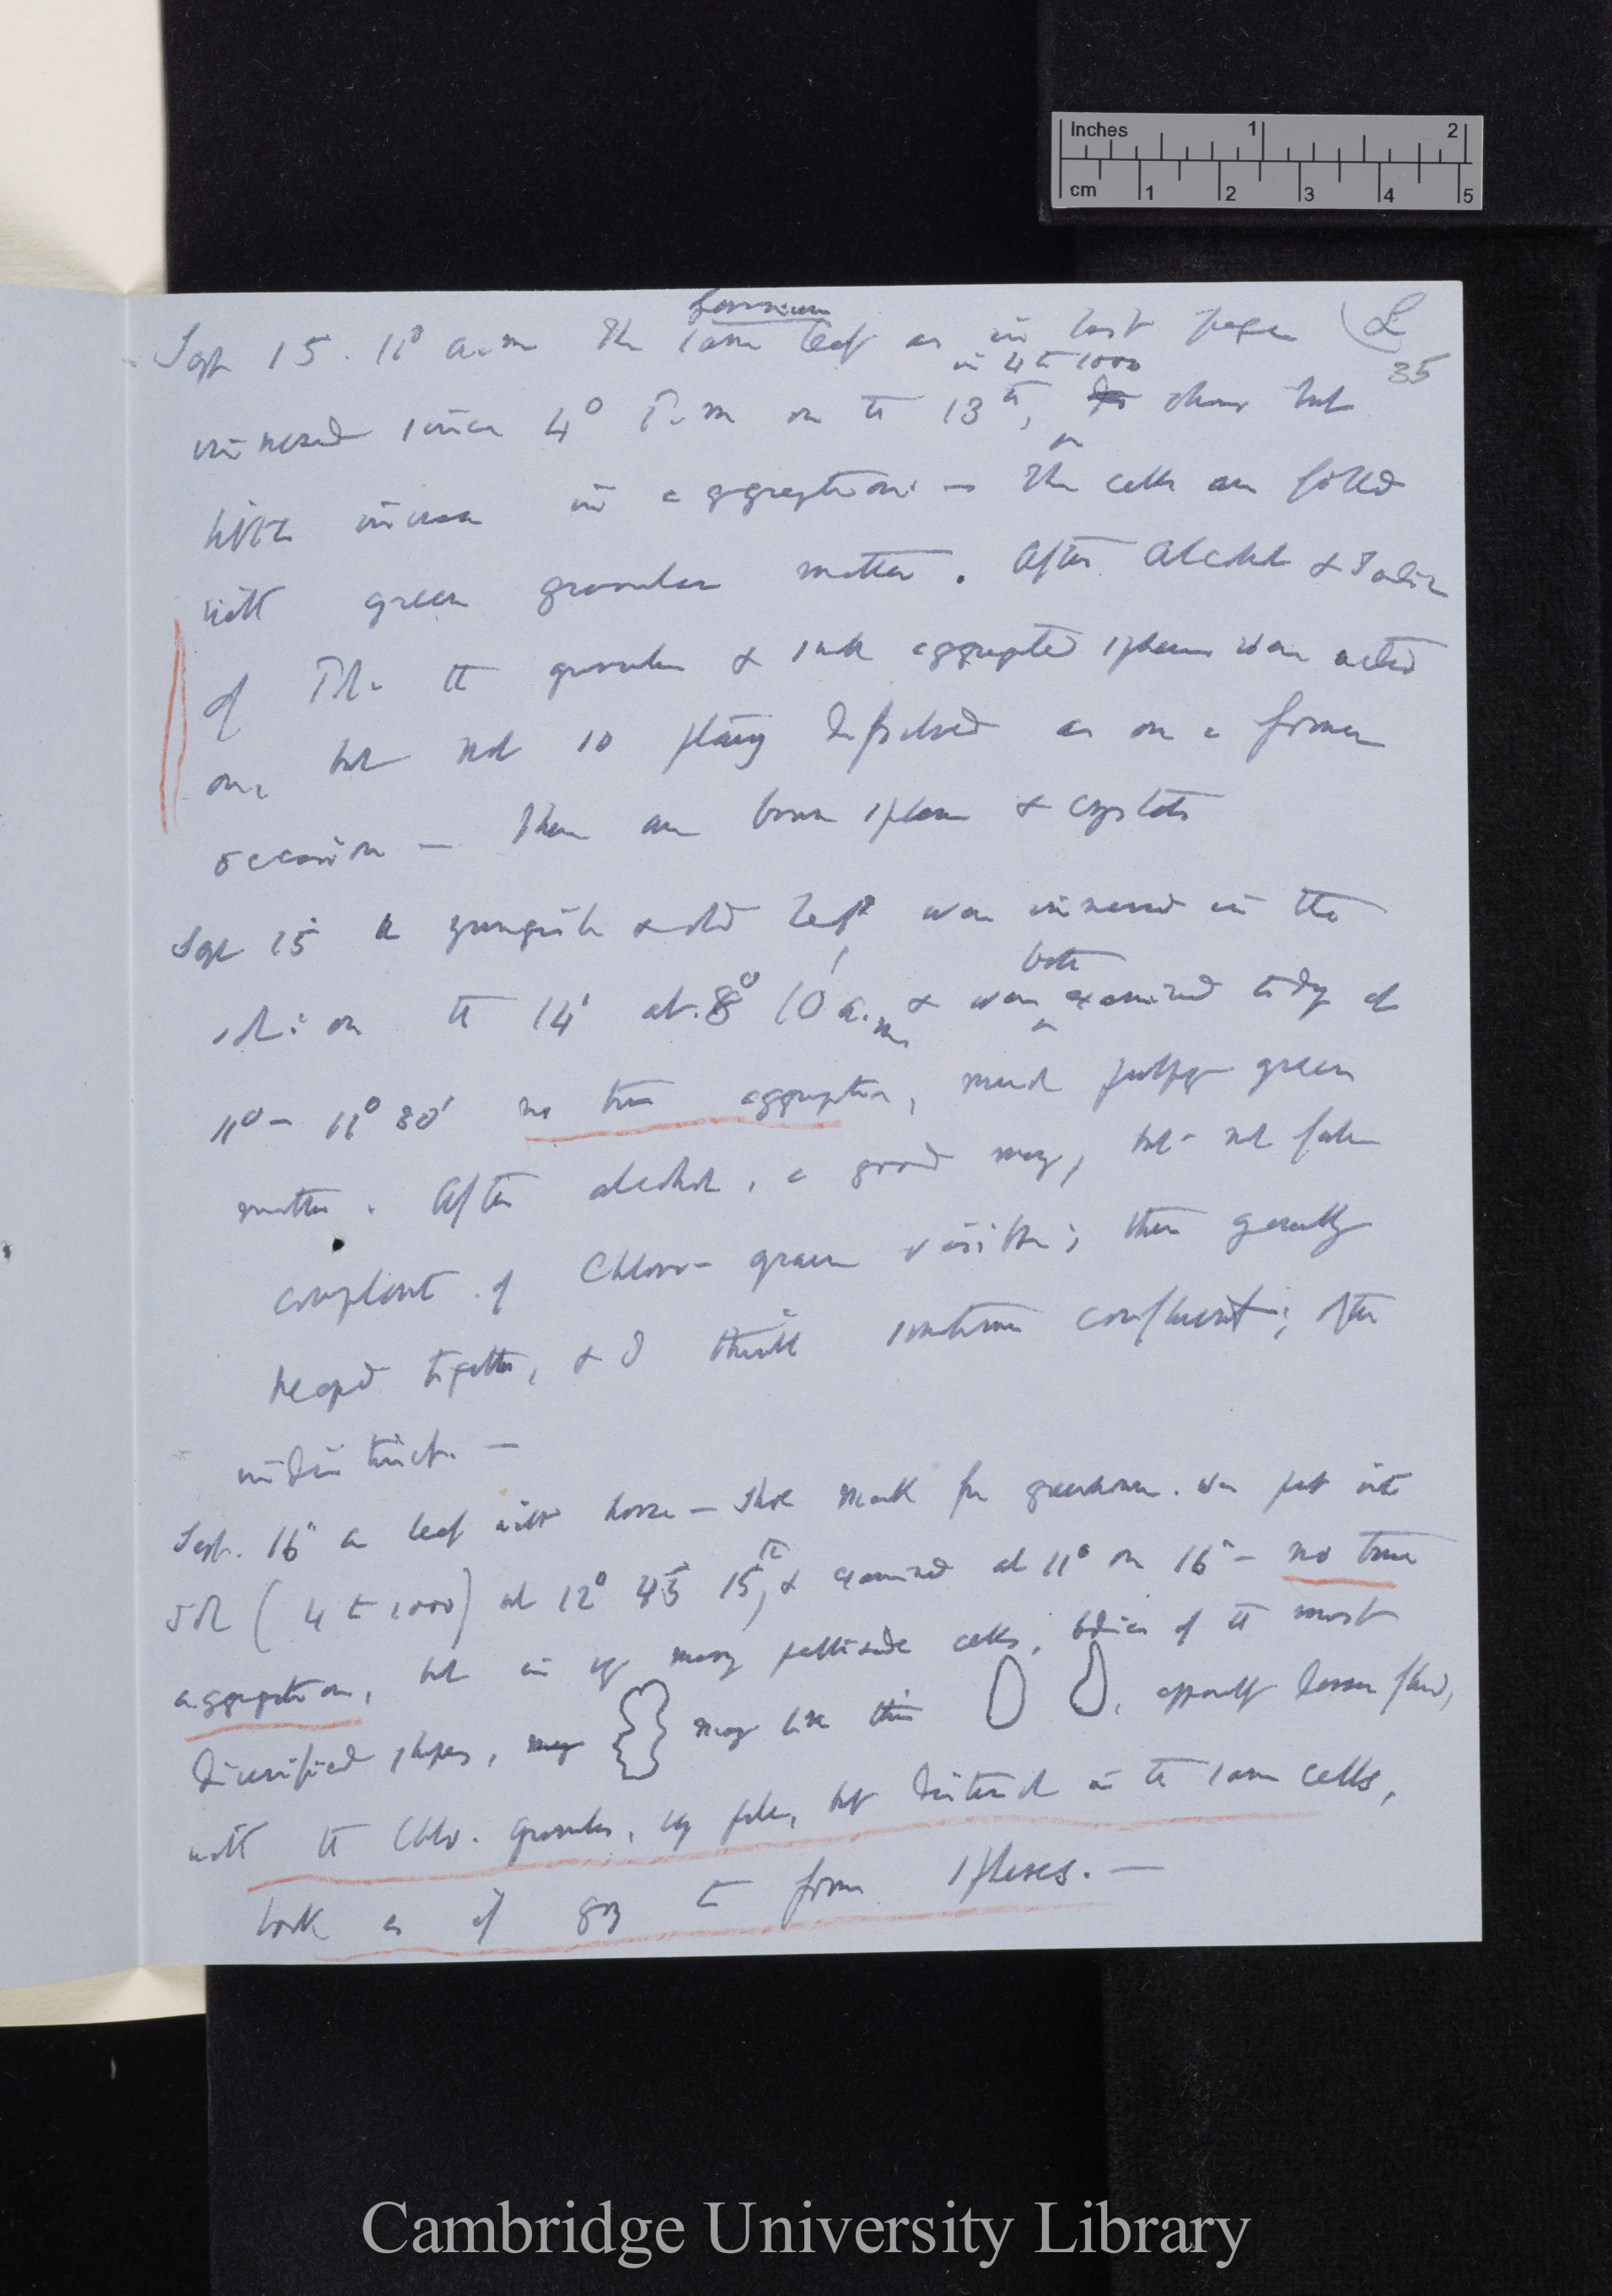 Inches 1 2
cm 1 2 3 4 5
L
35
Sept 15. 11° a.m The same leaf as in last page
in 4 to 1000
immersed since 4° P.m on the 13th, shows but
little increase in aggregation — The cells are filled
with green granular matter. After Alcohol & Solution
of the granules & such aggregated spheres were acted
on, but not so plainly dissolved as on a former
occasion — There are brown spheres & crystals
Sept 15 a youngish & old leaf was immersed in the
sol: on the 14 at 8° 10' a.m & were both examined to day at
11° – 11° 30' no true aggregation, much pulpy green
matter. After alcohol, a good many, but not full
complement of Chloro- grains visible; these generally
heaped together, & I think sometimes confluent; often
indistinct. —
Sept. 16 a leaf with horse-shoe mark from greenhouse. was put into
Sol (4 to 1000) at 12° 45' 15th, & examined at 11° on 16 – no true
aggregation, but in very many pallisade cells, bodies of the most
diversified shapes, many many like this , apparently dense fluid,
with the Chlo. granules, very pale, but distinct in the same cells,
look as if going to form spheres. —
Cambridge University Library